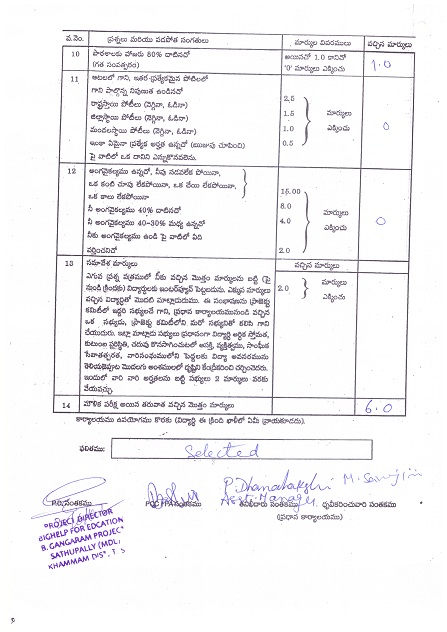 వ.నెం. ప్రశ్నలు మరియు పదపోత సంగతులు మార్కుల వివరములు వచ్చిన మార్కులు
10 పాఠశాలకు హాజరు 80% దాటినదో అయినచో 1.0 కానిచో 1.0
(గత సంవత్సరం) '0' మార్కులు ఎక్కించు
11 ఆటలలో గాని, ఇతర ప్రత్యేకమైన పోటీలలో
గాని పాల్గొన్న నిపుణుత ఉండినదో
రాష్ట్రస్థాయి పోటీలు (నెగ్గినా, ఓడినా) 2.5
జిల్లాస్థాయి పోటీలు (నెగ్గినా, ఓడినా) 1.5 మార్కులు
మండలస్థాయి పోటీలు (నెగ్గినా, ఓడినా) 1.0 ఎక్కించు 0
ఇంకా ఏమైనా ప్రత్యేక అర్హత ఉన్నచో (ఋజువు చూపించి) 0.5
పై వాటిలో ఒక దానిని ఎన్నుకొనవలెను.
12 అంగవైకల్యము ఉన్నదో, నీవు నడవలేక పోయినా,
ఒక కంటి చూపు లేకపోయినా, ఒక చేయి లేకపోయినా, 15.00
ఒక కాలు లేకపోయినా 8.0
నీ అంగవైకల్యము 40% దాటినదో 4.0 మార్కులు 0
నీ అంగవైకల్యము 40-30% మధ్య ఉన్నచో ఎక్కించు
నీకు అంగవైకల్యము ఉండి పై వాటిలో ఏది
వర్తించనిచో 2.0
13 సమావేశ మార్కులు వచ్చిన మార్కులు
ఎగువ ప్రశ్న పత్రములో నీకు వచ్చిన మొత్తం మార్కులను బట్టి (పై 2.0 మార్కులు
నుండి క్రిందకు) విద్యార్థులకు ఇంటర్వ్యూవ్ పెట్టబడును. ఎక్కువ మార్కులు ఎక్కించు
వచ్చిన విద్యార్థితో మొదటి మాట్లాడుదుము. ఈ సంభాషణను ప్రాజెక్టు
కమిటీలో ఇద్దరి సభ్యులచే గాని, ప్రధాన కార్యాలయమునుండి వచ్చిన
ఒక సభ్యుడు, ప్రాజెక్టు కమిటీలోని మరో సభ్యునితో కలిసి గాని
చేయుదురు. ఇట్లా మాట్లాడు సభ్యులు ప్రధానంగా విద్యార్థి ఆర్థిక స్తోమత,
కుటుంబ పరిస్థితి, చదువు కొనసాగించుటలో ఆసక్తి, వ్యక్తిత్వము, సాంఘీక
సేవాతత్పరత, వారినసంఘములోని పెద్దలకు విద్యా అవసరమును
తెలియజెప్పుట మొదలగు అంశములలో దృష్టిని కేంద్రీకరించి చర్చించెదరు.
ఇందులో వారి వారి అర్హతలను బట్టి సభ్యులు 2 మార్కులు వరకు
వేయవచ్చు.
14 మౌఖిక పరీక్ష అయిన తరువాత వచ్చిన మొత్తం మార్కులు 6.0
కార్యాలయము ఉపయోగము కొరకు (విద్యార్థి ఈ క్రింది ఖాళీలో ఏమీ వ్రాయకూడదు).
ఫలితము: Selected
P. Dhanalakshi M. Sarojini
Asst. Manager
తనిఖీదారు సంతకము ధృవీకరించువారి సంతకము
(ప్రధాన కార్యాలయము)
PROJECT DIRECTOR
BIGHELP FOR EDCATION
B. GANGARAM PROJEC
SATHUPALLY (MDL)
KHAMMAM DIST, T S